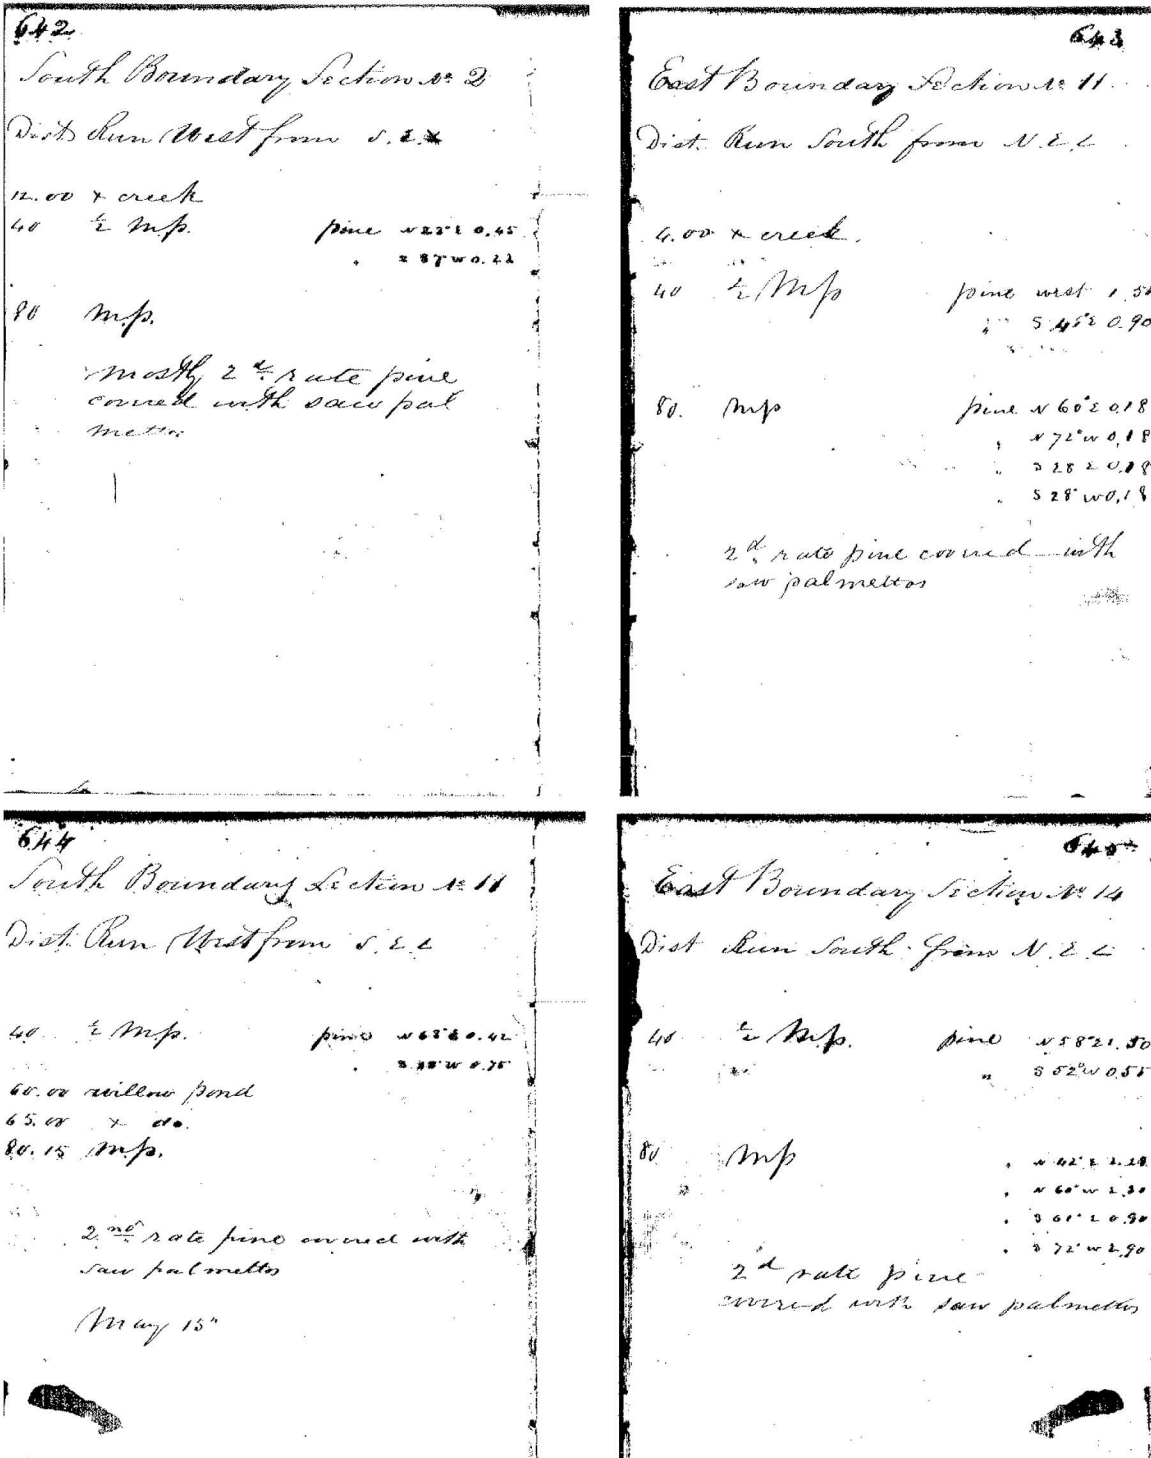 642
South Boundary Section No 2
Dist Run West from S. E.
12.00 x creek
40 ½ Mp. pine N23E 0.45
" 87 W 0.22
80 M.p.
Mostly 2d. rate pine
covered with saw pal
mettos
643
East Boundary Section No 11
Dist. Run South from N. E. C
4.00 x creek.
40 ½ Mp pine west 1.50
" S 45° E 0.90
80. Mp pine N 60° E 0.18
" N 72° W 0.18
" S 28 E 0.18
" S 28° W 0.18
2d. rate pine covered with
saw palmettos
644
South Boundary Section No 11
Dist. Run West from S. E. C
40 ½ Mp. pine N 63° E 0.42
" W 0.75
60.00 willow pond
65.00 x do.
80.15 Mp.
2nd rate pine covered with
saw palmettos
May 15"
645
East Boundary Section No 14
Dist Run South from N. E. C
40 ½ Mp. pine N 58° E 1.50
" S 52° W 0.55
80 Mp " N 42° E 2.28
" N 60° W 2.30
" S 61° E 0.90
" S 72° W 2.90
2d rate pine
covered with saw palmettos